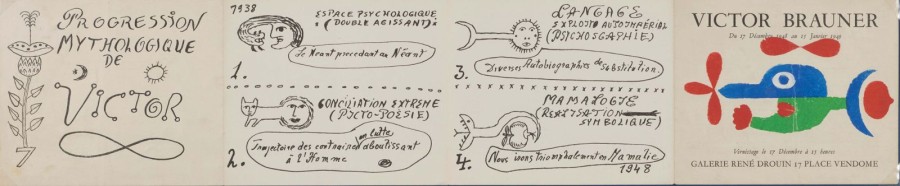 PROGRESSION
MYTHOLOGIQUE
DE
VICTOR
1938
ESPACE PSYCHOLOGIQUE
(DOUBLE AGISSANT)
Le Néant precedant au Néant
1.
CONCILIATION EXTREME
(PICTO-POÈSIE)
en lutte
Trajectoire des contraires aboutissant
à l'Homme
2.
LANGAGE
EXPLOSIO AUTOIMPERIAL
(PSICHOSGRAPHIE)
Diverses Autobiographies de Substitution.
3.
MAMALOGIE
(REALISATION
SYMBOLIQUE)
Nous irons triomphalement en Mamalie
1948
4.
VICTOR BRAUNER
Du 17 Décembre 1948 au 15 Janvier 1949
Vernissage le 17 Décembre à 15 heures
GALERIE RENÉ DROUIN 17 PLACE VENDOME